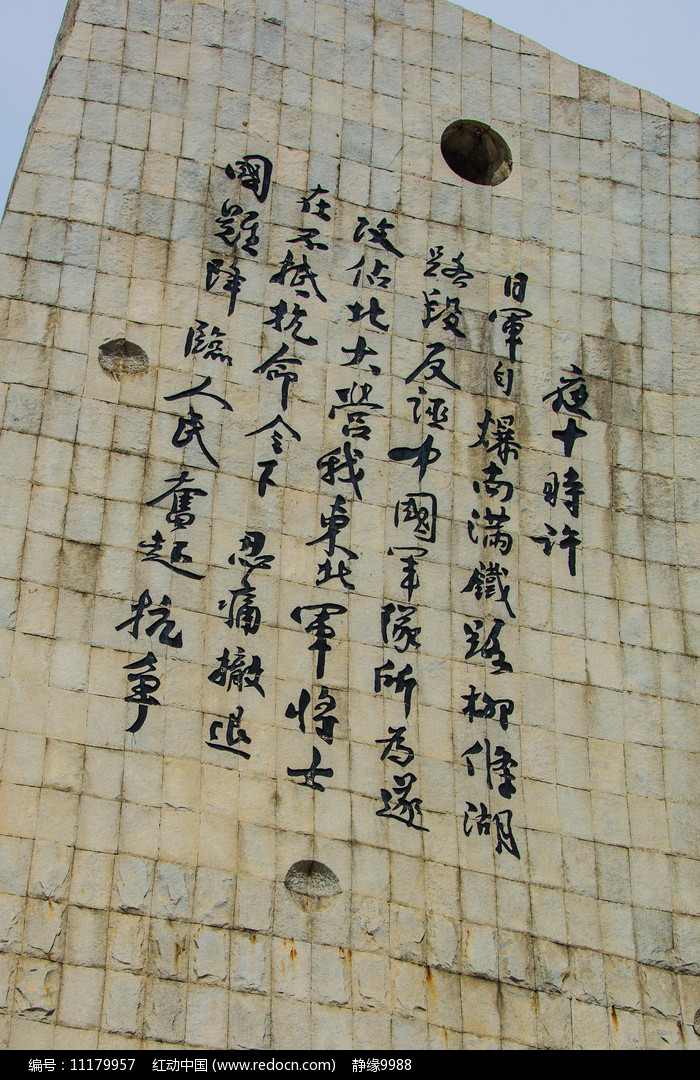 夜十時許
日軍自爆南滿鐵路柳條湖
路段反誣中國軍隊所為遂
攻佔北大營我東北軍將士
在不抵抗命令下 忍痛撤退
國難降臨人民奮起抗爭
编号：11179957 红动中国 (www.redocn.com) 静缘9988